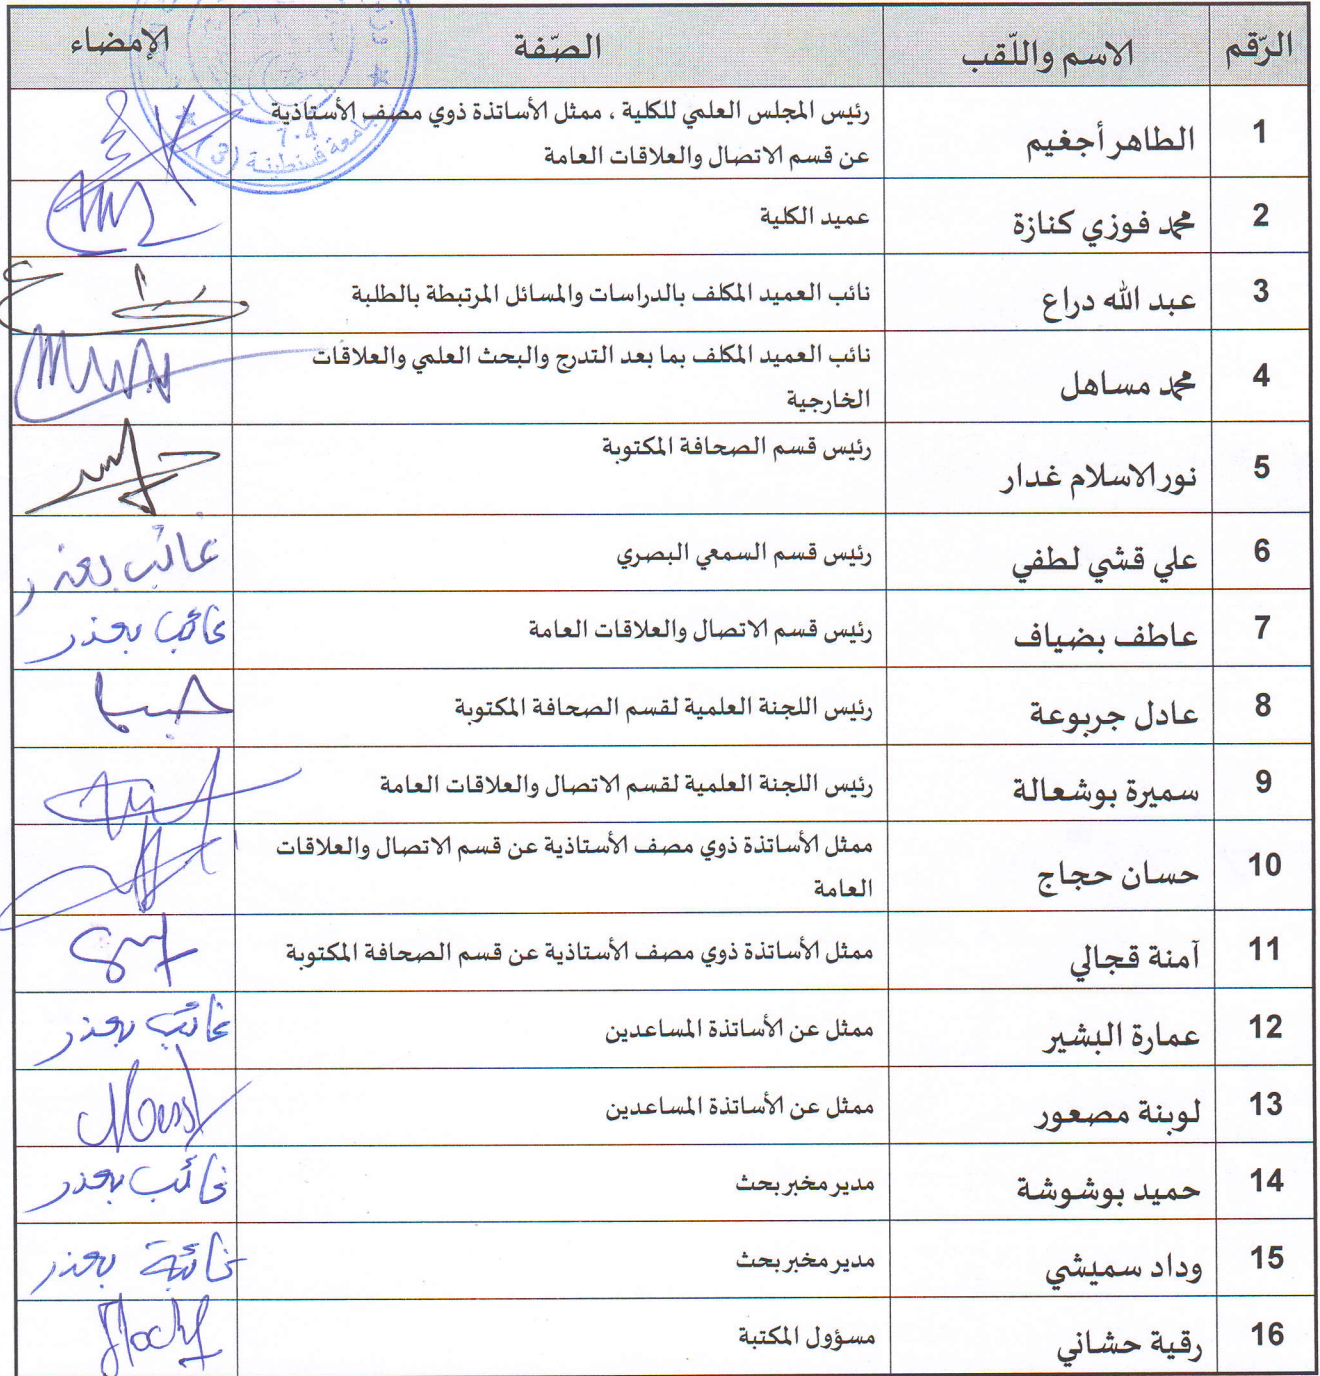 الرّقم الاسم واللّقب الصّفة الإمضاء
جامعة قسنطينة (3)
1 الطاهر أجغيم رئيس المجلس العلمي للكلية ، ممثل الأساتذة ذوي مصف الأستاذية
عن قسم الاتصال والعلاقات العامة
2 محمد فوزي كنازة عميد الكلية
3 عبد الله دراع نائب العميد المكلف بالدراسات والمسائل المرتبطة بالطلبة
4 محمد مساهل نائب العميد المكلف بما بعد التدرج والبحث العلمي والعلاقات
الخارجية
5 نور الاسلام غدار رئيس قسم الصحافة المكتوبة
6 علي قشي لطفي رئيس قسم السمعي البصري غائب بعذر
7 عاطف بضياف رئيس قسم الاتصال والعلاقات العامة غائب بعذر
8 عادل جربوعة رئيس اللجنة العلمية لقسم الصحافة المكتوبة
9 سميرة بوشعالة رئيس اللجنة العلمية لقسم الاتصال والعلاقات العامة
10 حسان حجاج ممثل الأساتذة ذوي مصف الأستاذية عن قسم الاتصال والعلاقات
العامة
11 آمنة قجالي ممثل الأساتذة ذوي مصف الأستاذية عن قسم الصحافة المكتوبة
12 عمارة البشير ممثل عن الأساتذة المساعدين غائب بعذر
13 لوبنة مصعور ممثل عن الأساتذة المساعدين
14 حميد بوشوشة مدير مخبر بحث غائب بعذر
15 وداد سميشي مدير مخبر بحث غائبة بعذر
16 رقية حشاني مسؤول المكتبة